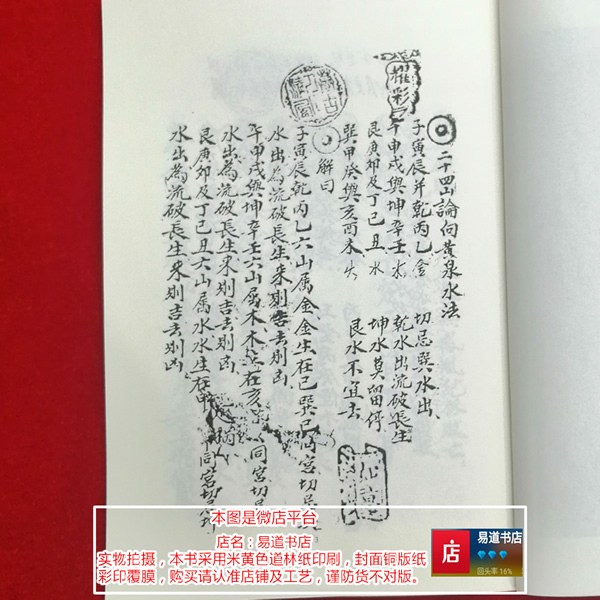 耀彩
二十四山論向黄泉水法
子寅辰并乾丙乙金 切忌巽水出
午申戌與坤辛壬木 乾水出流破長生
艮庚卯及丁巳丑水 坤水莫留停
巽甲癸與亥酉未火 艮水不宜去
解曰
子寅辰乾丙乙六山属金金生在巳巽巳同宮切忌
水出為流破長生来則吉去則凶
午申戌與坤辛壬六山属木木生在亥 同宮切
水出為流破長生来則吉去則凶
艮庚卯及丁巳丑六山属水水生在申 同宮切忌
水出為流破長生来則吉去則凶
本图是微店平台
店名：易道书店
实物拍摄，本书采用米黄色道林纸印刷，封面铜版纸
彩印覆膜，购买请认准店铺及工艺，谨防货不对版。
店
易道书店
回头率 16%